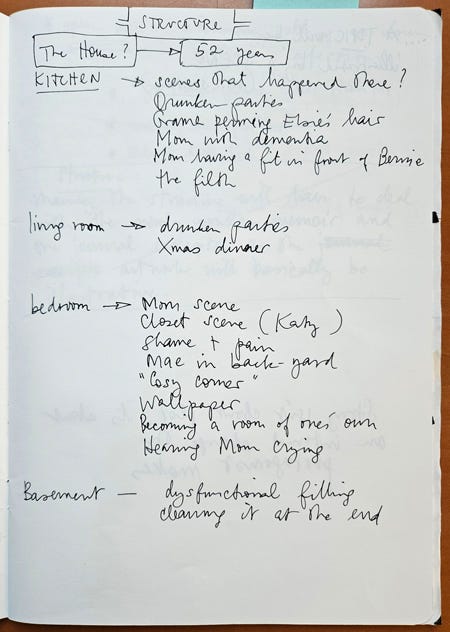 STRUCTURE
The House? → 52 years
KITCHEN → scenes that happened there?
Drunken parties
Grame perming Elsie's hair
Mom with dementia
Mom having a fit in front of Bernie
the filth
living room → drunken parties
Xmas dinner
bedroom → Mom scene
Closet scene (Katy)
Shame + pain
Mae in back-yard
"Cosy corner"
Wallpaper
Becoming a room of one's own
Hearing Mom crying
Basement — dysfunctional filling
cleaning it at the end